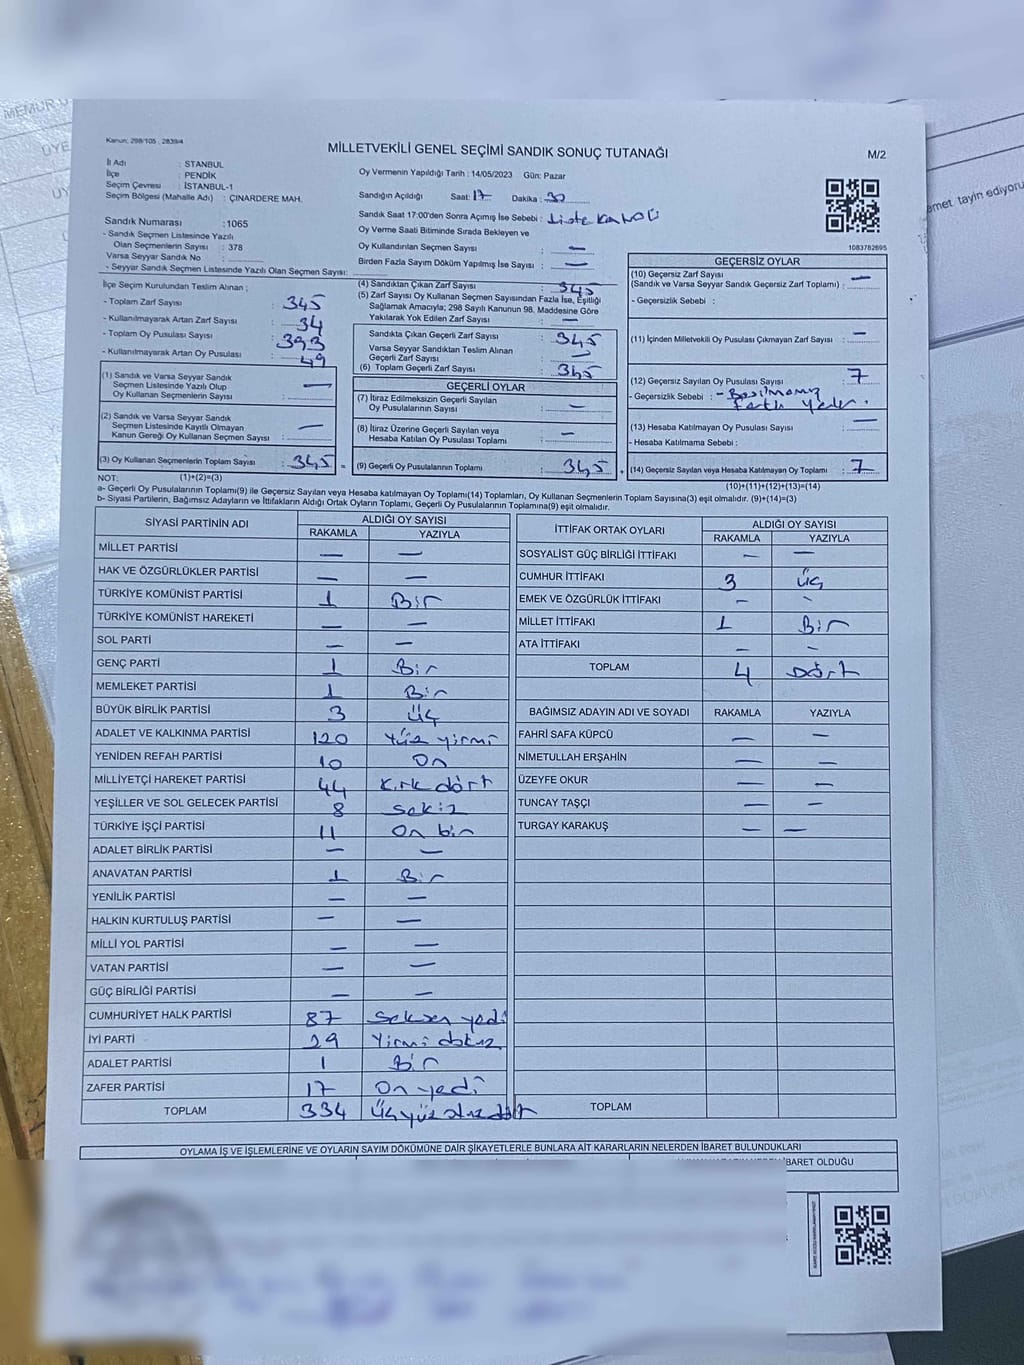 Kanun: 298/105 , 2839/4
MİLLETVEKİLİ GENEL SEÇİMİ SANDIK SONUÇ TUTANAĞI
M/2
İl Adı : STANBUL
İlçe : PENDİK
Seçim Çevresi : İSTANBUL-1
Seçim Bölgesi (Mahalle Adı) : ÇINARDERE MAH.
Sandık Numarası :1065
- Sandık Seçmen Listesinde Yazılı
Olan Seçmenlerin Sayısı : 378
Varsa Seyyar Sandık No :
- Seyyar Sandık Seçmen Listesinde Yazılı Olan Seçmen Sayısı:
Oy Vermenin Yapıldığı Tarih : 14/05/2023 Gün: Pazar
Sandığın Açıldığı Saat: 17 Dakika : 30
Sandık Saat 17:00'den Sonra Açımış İse Sebebi : Liste
Oy Verme Saati Bitiminde Sırada Bekleyen ve
Oy Kullandırılan Seçmen Sayısı : —
Birden Fazla Sayım Döküm Yapılmış İse Sayısı : —
1083782695
İlçe Seçim Kurulundan Teslim Alınan ;
- Toplam Zarf Sayısı : 345
- Kullanılmayarak Artan Zarf Sayısı : 34
- Toplam Oy Pusulası Sayısı : 393
- Kullanılmayarak Artan Oy Pusulası : 49
(1) Sandık ve Varsa Seyyar Sandık
Seçmen Listesinde Yazılı Olup
Oy Kullanan Seçmenlerin Sayısı : —
(2) Sandık ve Varsa Seyyar Sandık
Seçmen Listesinde Kayıtlı Olmayan
Kanun Gereği Oy Kullanan Seçmen Sayısı : —
(3) Oy Kullanan Seçmenlerin Toplam Sayısı : 345
(1)+(2)=(3)
(4) Sandıktan Çıkan Zarf Sayısı : 345
(5) Zarf Sayısı Oy Kullanan Seçmen Sayısından Fazla İse, Eşitliği
Sağlamak Amacıyla; 298 Sayılı Kanunun 98. Maddesine Göre
Yakılarak Yok Edilen Zarf Sayısı : —
Sandıkta Çıkan Geçerli Zarf Sayısı : 345
Varsa Seyyar Sandıktan Teslim Alınan
Geçerli Zarf Sayısı : —
(6) Toplam Geçerli Zarf Sayısı : 345
GEÇERLİ OYLAR
(7) İtiraz Edilmeksizin Geçerli Sayılan
Oy Pusulalarının Sayısı : —
(8) İtiraz Üzerine Geçerli Sayılan veya
Hesaba Katılan Oy Pusulası Toplamı : —
= (9) Geçerli Oy Pusulalarının Toplamı : 345
GEÇERSİZ OYLAR
(10) Geçersiz Zarf Sayısı —
(Sandık ve Varsa Seyyar Sandık Geçersiz Zarf Toplamı) :
- Geçersizlik Sebebi :
(11) İçinden Milletvekili Oy Pusulası Çıkmayan Zarf Sayısı : —
(12) Geçersiz Sayılan Oy Pusulası Sayısı : 7
- Geçersizlik Sebebi : - Basılmamış
(13) Hesaba Katılmayan Oy Pusulası Sayısı : —
- Hesaba Katılmama Sebebi :
+ (14) Geçersiz Sayılan veya Hesaba Katılmayan Oy Toplamı : 7
(10)+(11)+(12)+(13)=(14)
NOT:
a- Geçerli Oy Pusulalarının Toplamı(9) ile Geçersiz Sayılan veya Hesaba katılmayan Oy Toplamı(14) Toplamları, Oy Kullanan Seçmenlerin Toplam Sayısına(3) eşit olmalıdır. (9)+(14)=(3)
b- Siyasi Partilerin, Bağımsız Adayların ve İttifakların Aldığı Ortak Oyların Toplamı, Geçerli Oy Pusulalarının Toplamına(9) eşit olmalıdır.
SİYASİ PARTİNİN ADI ALDIĞI OY SAYISI
RAKAMLA YAZIYLA
MİLLET PARTİSİ — —
HAK VE ÖZGÜRLÜKLER PARTİSİ — —
TÜRKİYE KOMÜNİST PARTİSİ 1 Bir
TÜRKİYE KOMÜNİST HAREKETİ — —
SOL PARTİ — —
GENÇ PARTİ 1 Bir
MEMLEKET PARTİSİ 1 Bir
BÜYÜK BİRLİK PARTİSİ 3 üç
ADALET VE KALKINMA PARTİSİ 120 Yüz yirmi
YENİDEN REFAH PARTİSİ 10 On
MİLLİYETÇİ HAREKET PARTİSİ 44 Kırk dört
YEŞİLLER VE SOL GELECEK PARTİSİ 8 sekiz
TÜRKİYE İŞÇİ PARTİSİ 11 On bir
ADALET BİRLİK PARTİSİ — —
ANAVATAN PARTİSİ 1 Bir
YENİLİK PARTİSİ — —
HALKIN KURTULUŞ PARTİSİ — —
MİLLİ YOL PARTİSİ — —
VATAN PARTİSİ — —
GÜÇ BİRLİĞİ PARTİSİ — —
CUMHURİYET HALK PARTİSİ 87 Seksen yedi
İYİ PARTİ 29 Yirmi dokuz
ADALET PARTİSİ 1 Bir
ZAFER PARTİSİ 17 On yedi
TOPLAM 334 Üçyüz otuz dört
İTTİFAK ORTAK OYLARI ALDIĞI OY SAYISI
RAKAMLA YAZIYLA
SOSYALİST GÜÇ BİRLİĞİ İTTİFAKI — —
CUMHUR İTTİFAKI 3 üç
EMEK VE ÖZGÜRLÜK İTTİFAKI — —
MİLLET İTTİFAKI 1 Bir
ATA İTTİFAKI — —
TOPLAM 4 Dört
BAĞIMSIZ ADAYIN ADI VE SOYADI RAKAMLA YAZIYLA
FAHRİ SAFA KÜPCÜ — —
NİMETULLAH ERŞAHİN — —
ÜZEYFE OKUR — —
TUNCAY TAŞÇI — —
TURGAY KARAKUŞ — —
TOPLAM
OYLAMA İŞ VE İŞLEMLERİNE VE OYLARIN SAYIM DÖKÜMÜNE DAİR ŞİKAYETLERLE BUNLARA AİT KARARLARIN NELERDEN İBARET BULUNDUKLARI
İBARET OLDUĞU
MEMUR
ÜYE
amet. tayin ediyoru